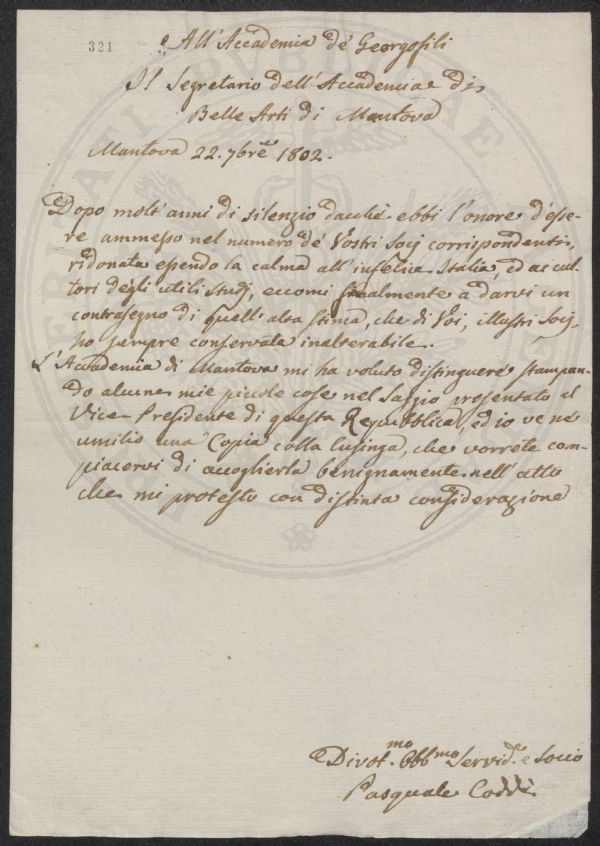 321
All'Accademia de' Georgofili
Il Segretario dell'Accademia di
Belle Arti di Mantova
Mantova 22. 7bre 1802.
Dopo molt'anni di silenzio dacchè ebbi l'onore d'esse-
re ammesso nel numero de' Vostri Socj corrispondenti,
ridonata essendo la calma all'infelice Italia, ed ai cul-
tori degli utili studj, eccomi finalmente a darvi un
contrasegno di quell'alta stima, che di Voi, illustri Socj,
ho sempre conservata inalterabile.
L'Accademia di Mantova mi ha voluto distinguere stampan-
do alcune mie piccole cose nel Saggio presentato al
Vice-Presidente di questa Repubblica, ed io ve ne
umilio una Copia colla lusinga, che vorrete com-
piacervi di accoglierla benignamente nell'atto
che mi protesto con distinta considerazione
Divot.mo Obb.mo Servid.e e Socio
Pasquale Coddè